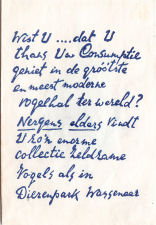 Wist U ....dat U
thans Uw Consumptie
geniet in de gróótste
en meest moderne
vogelhal ter wereld?
Nergens elders vindt
U zo'n enorme
collectie zeldzame
Vogels als in
Dierenpark Wassenaar